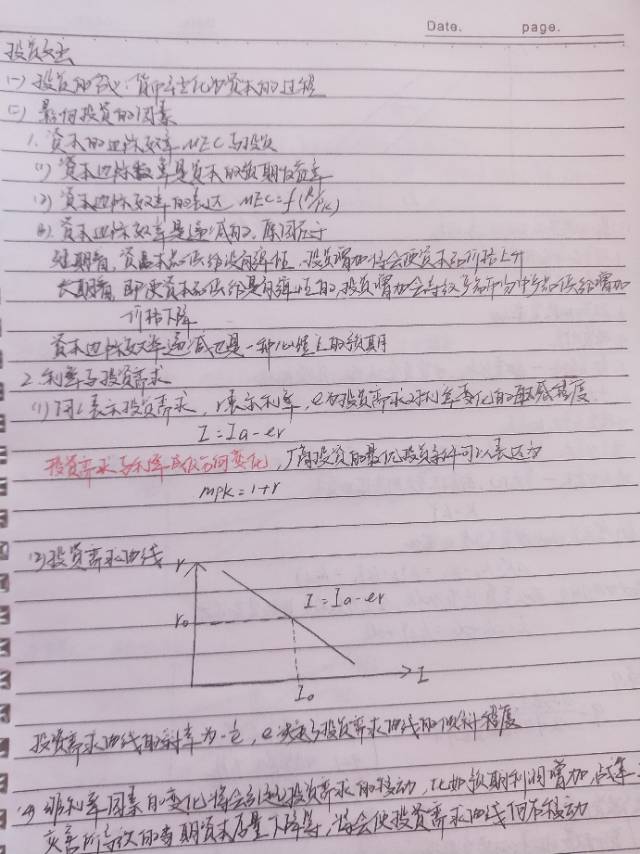 Date.    page.
投资支出
(一) 投资的含义:货币转化为资本的过程
(二) 影响投资的因素
1. 资本的边际效率MEC与投资
(1) 资本边际效率是资本的预期收益率
(2) 资本边际效率的表达 MEC=f(R/PK)
(3) 资本边际效率是递减的,原因在于
短期看,资本品供给没有弹性,投资增加将会使资本品价格上升
长期看,即使资本品供给是有弹性的,投资增加会导致未来市场中产品供给增加
价格下降
资本边际效率递减也是一种心理上的预期
2. 利率与投资需求
(1) 用I表示投资需求,r表示利率,e为投资需求对利率变化的敏感程度
I=Ia-er
投资需求与利率成反方向变化,厂商投资的最优投资条件可以表达为
mpk=1+r
(2) 投资需求曲线
r
I=Ia-er
r₀
I
I₀
投资需求曲线的斜率为-1/e,e决定了投资需求曲线的倾斜程度
(3) 非利率因素的变化将会引起投资需求的移动,比如预期利润增加,战争
灾害所导致的当期资本存量下降等,将会使投资需求曲线向右移动